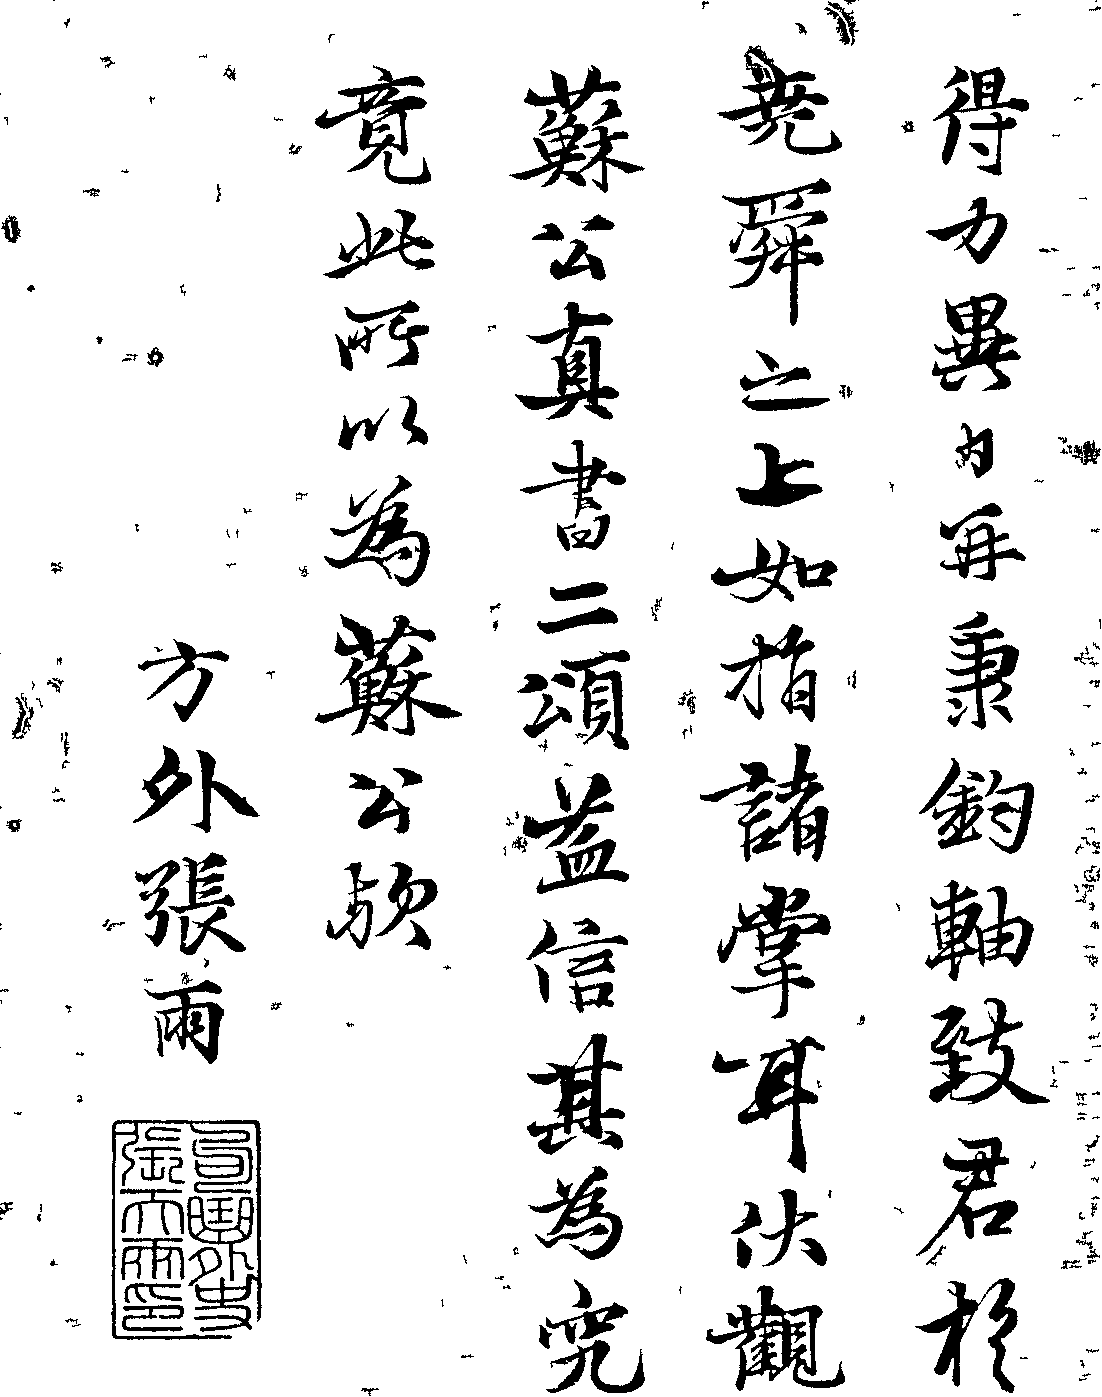 得力異日再秉鈞軸致君於
堯舜之上如指諸掌耳伏觀
蘇公真書二頌益信其為究
竟此所以為蘇公歟
方外張雨
句曲外史
張天雨印